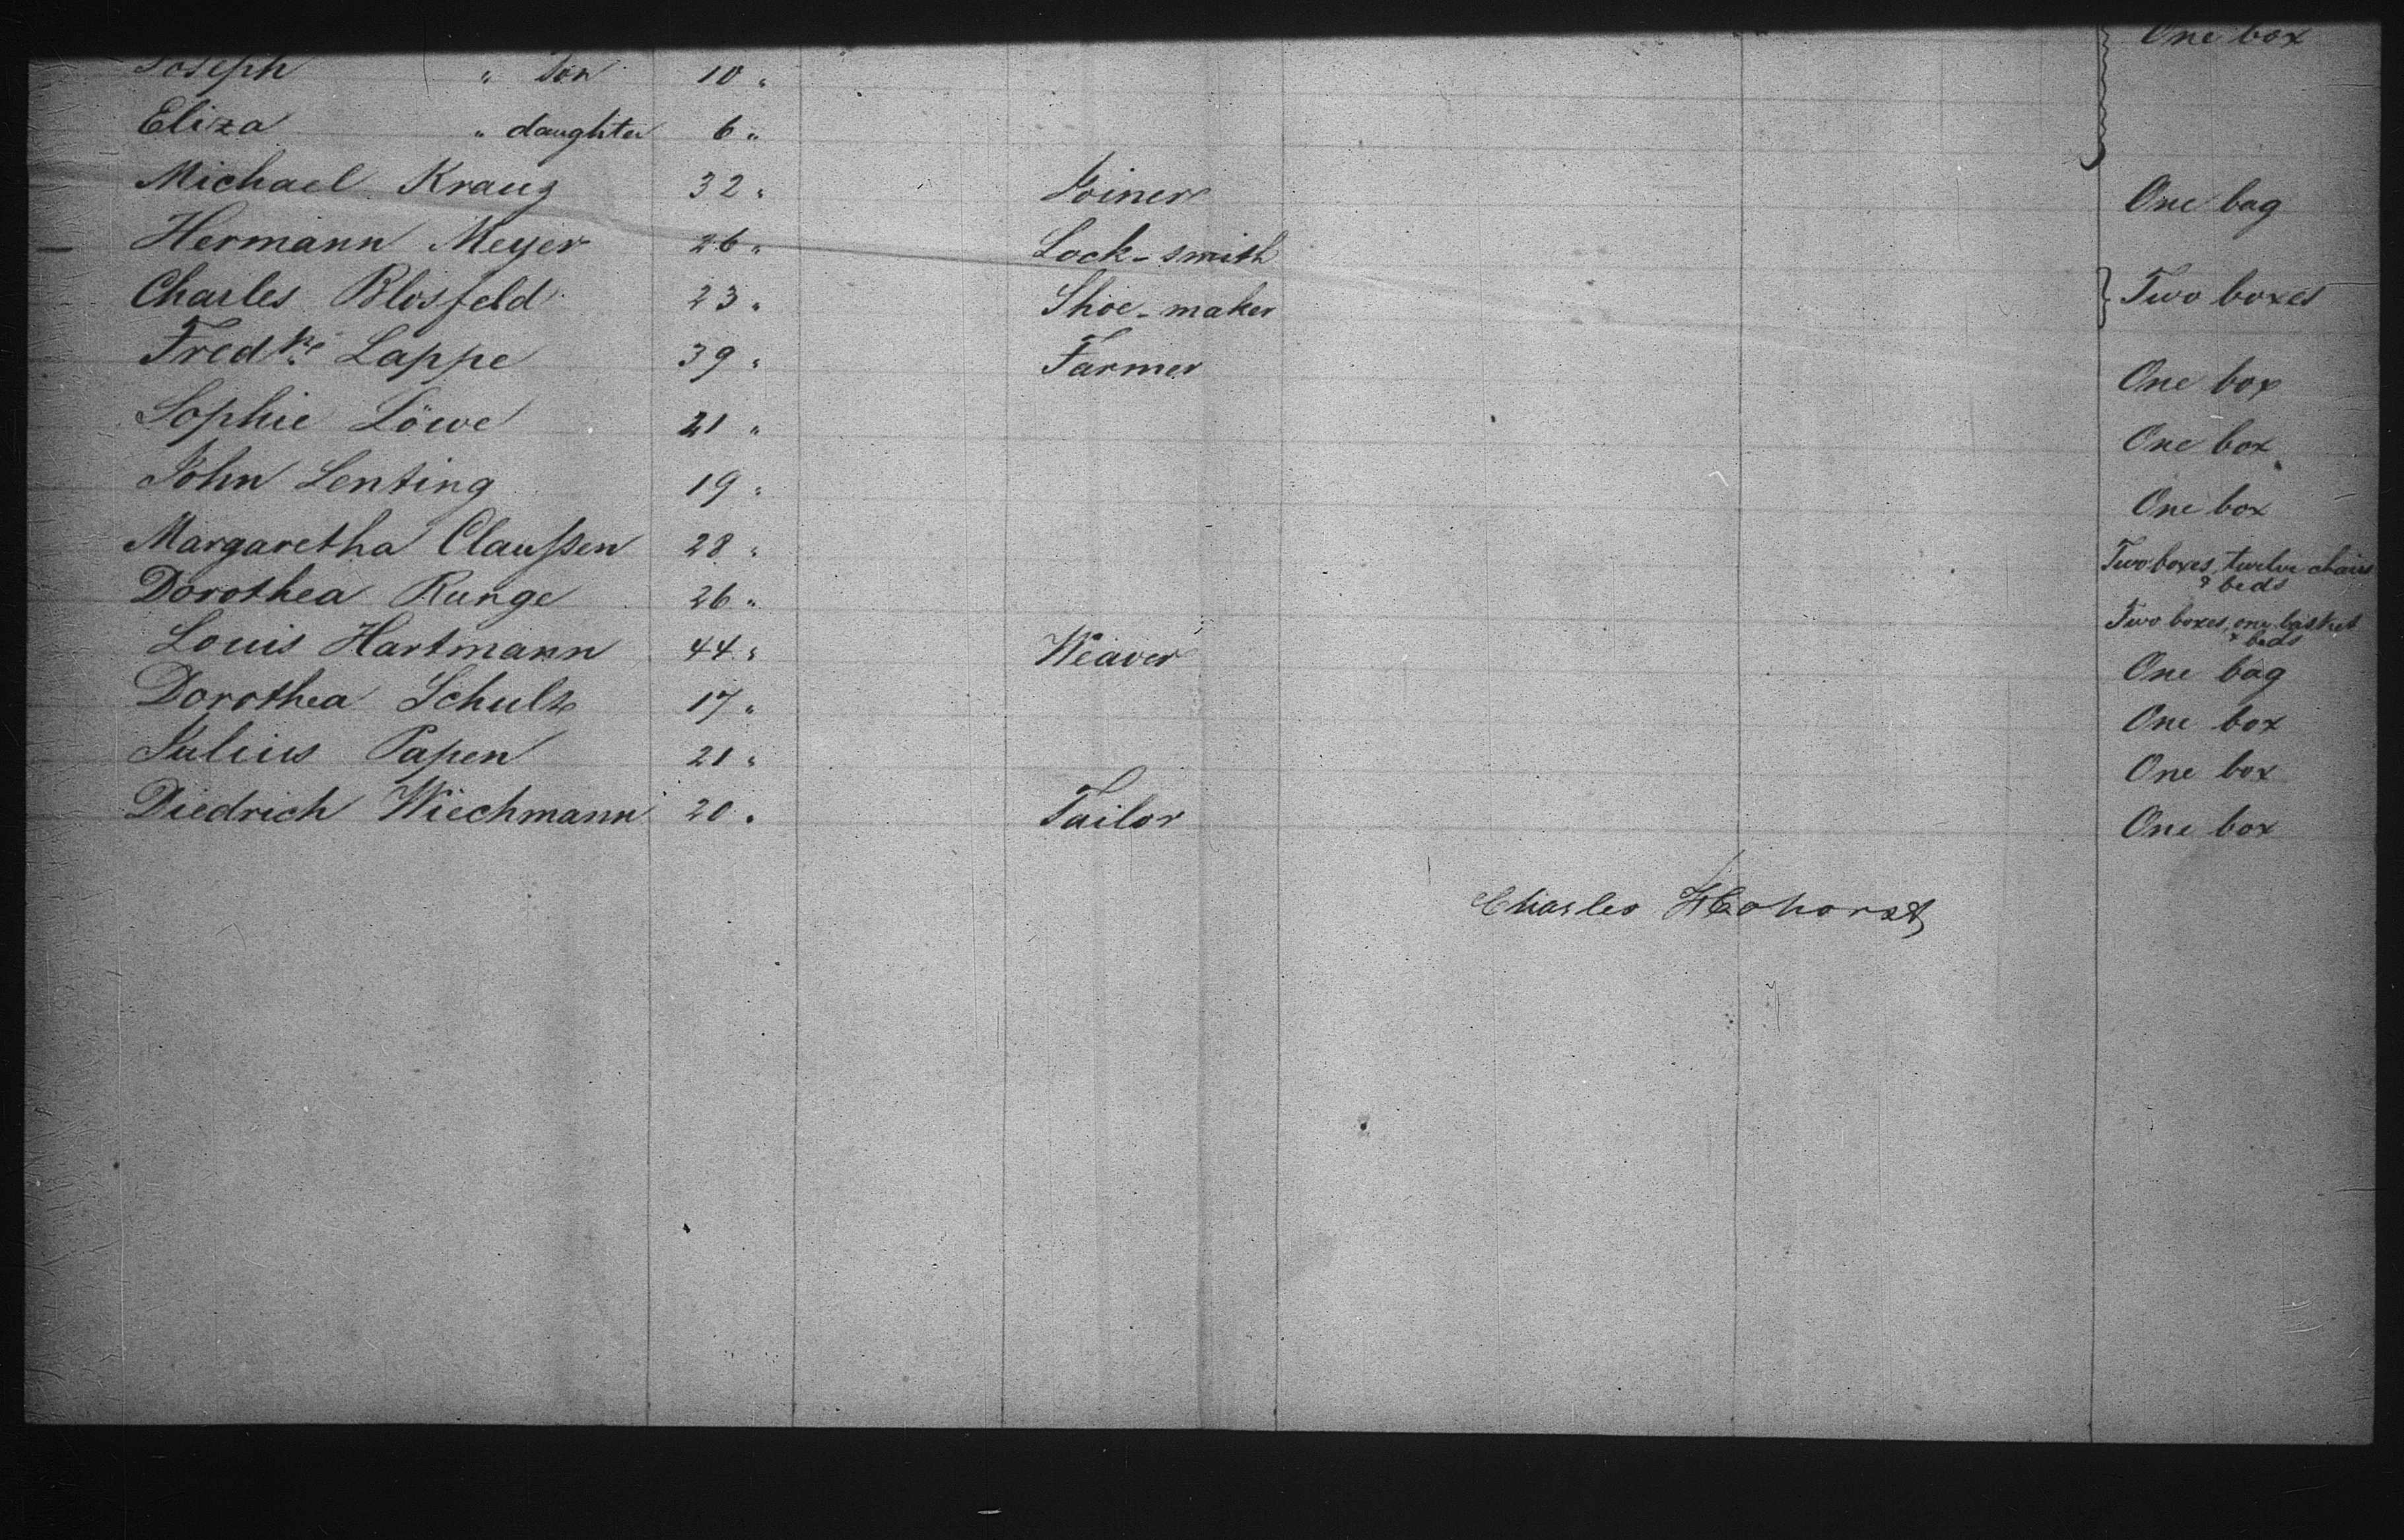 One box
Joseph " son 10 "
Eliza " daughter 6 "
Michael Kraus 32 " Joiner One bag
Hermann Meyer 26 " Lock-smith
Charles Blosfeld 23 " Shoe-maker Two boxes
Fred ke Lappe 39 " Farmer One box
Sophie Löwe 21 " One box
John Lenting 19 " One box
Margaretha Claußen 28 " Two boxes, twelve chairs
& beds
Dorothea Runge 26 " Two boxes, one basket
& beds
Louis Hartmann 44 " Weaver One bag
Dorothea Schulz 17 " One box
Julius Papen 21 " One box
Diedrich Wiechmann 20 " Tailor One box
Charles Hohorst